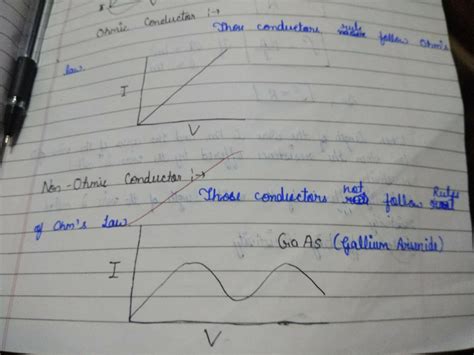 Ohmic Conductor :→
Those conductors rule follow Ohm's
law.
I
V
Non-Ohmic Conductor :→
Those conductors not follow Rules
of Ohm's Law
GaAs (Gallium Arsenide)
I
V